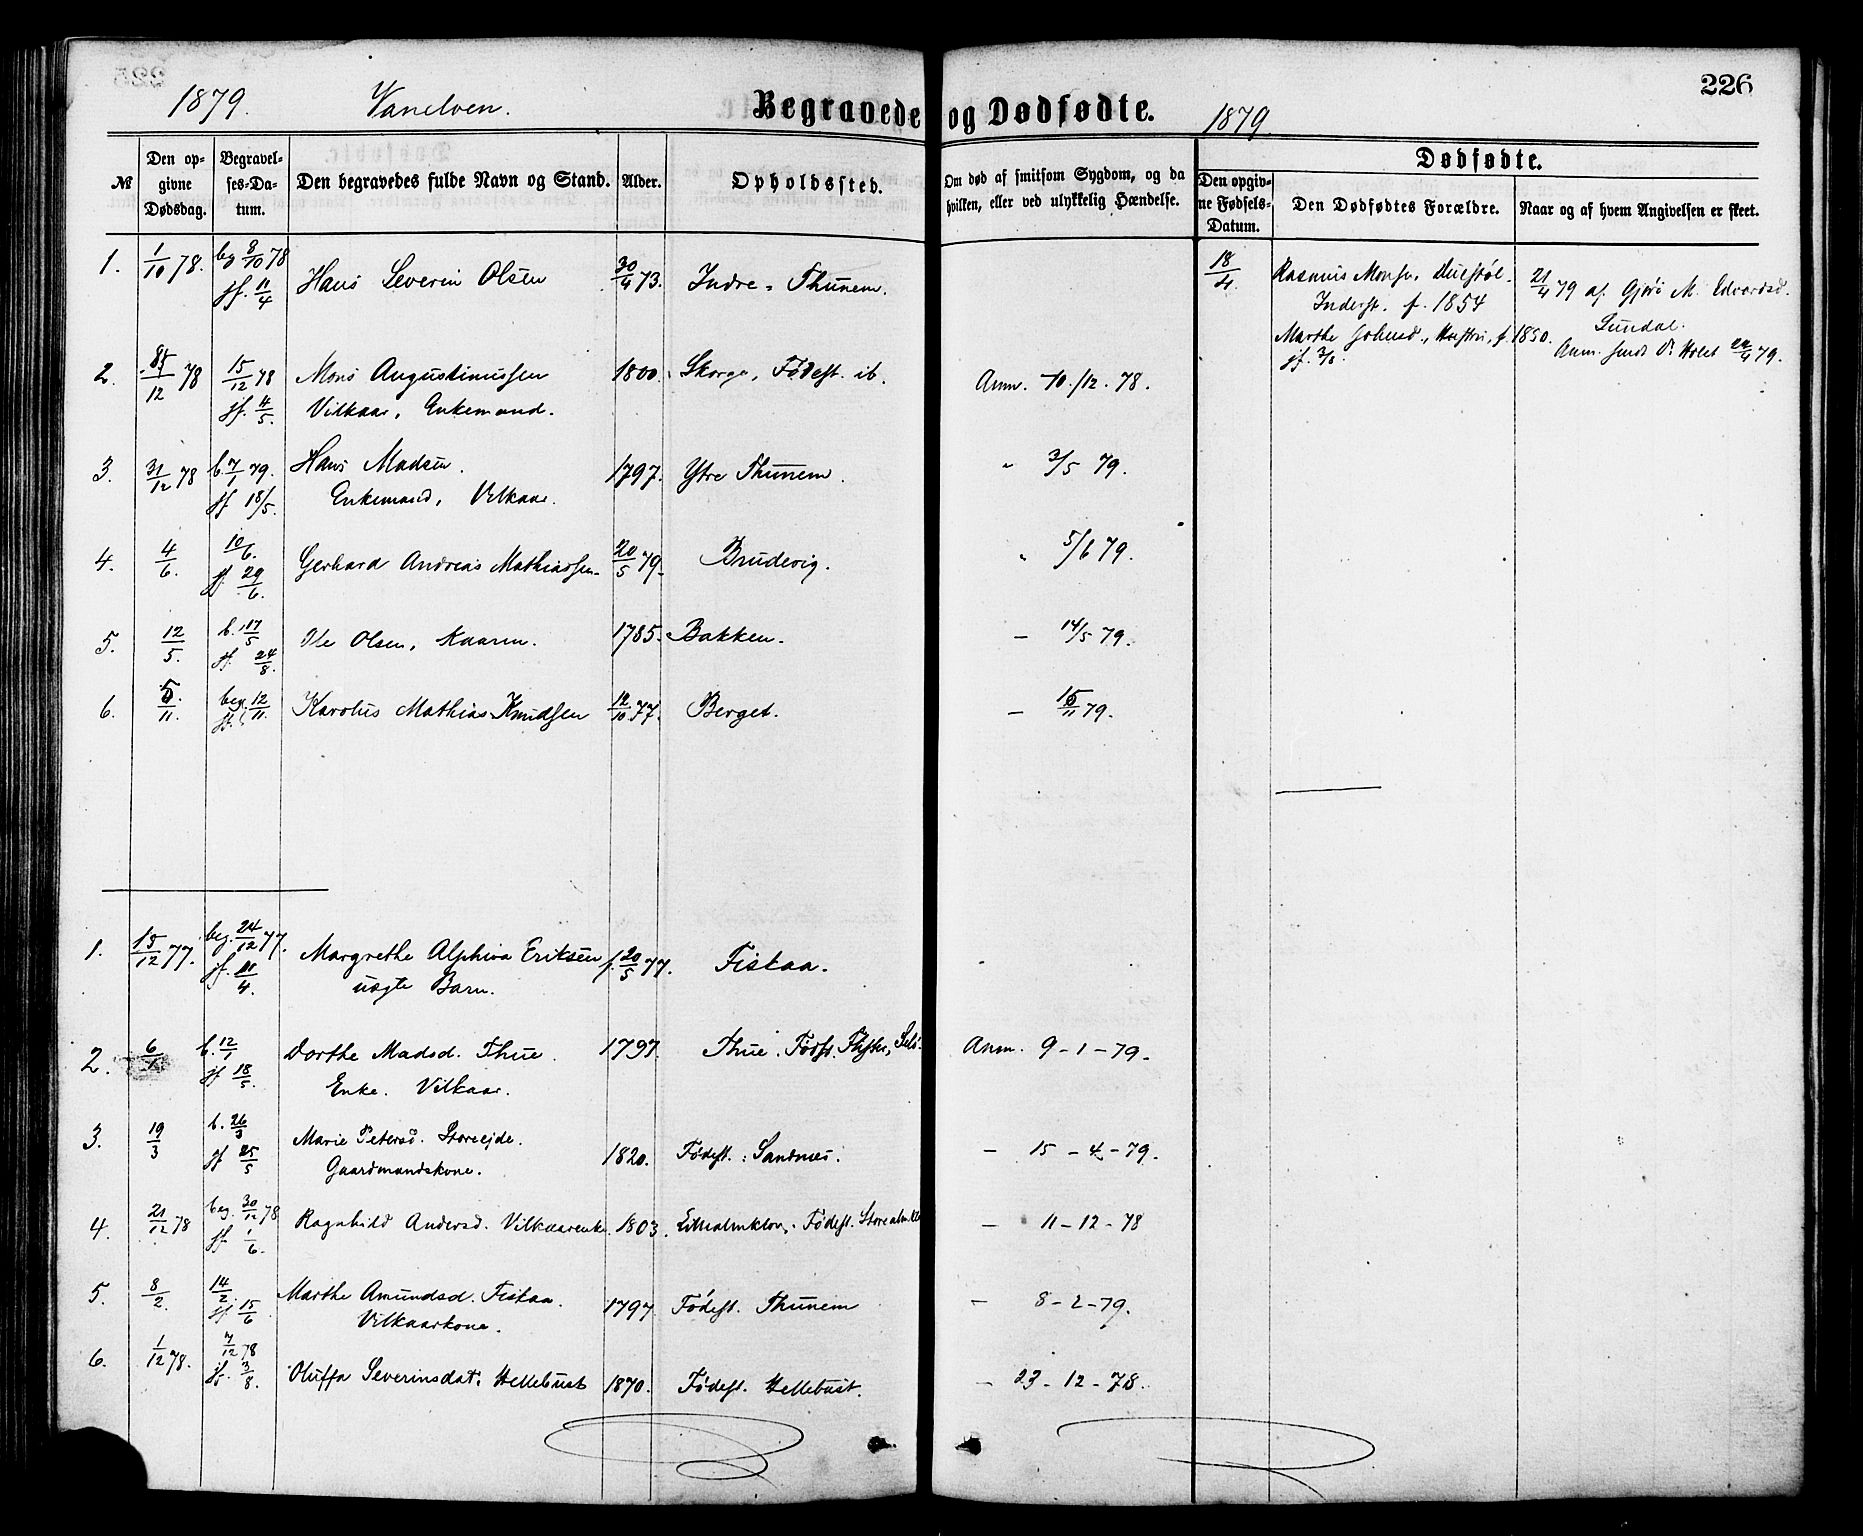 226
1879. Vanelven. Begravede og Dødfødte. 1879
Dødfødte.
№ Den opgivne Dødsdag. Begravelses-Datum. Den begravedes fulde Navn og Stand. Alder. Opholdssted. Om død af smitsom Sygdom, og da hvilken, eller ved ulykkelig Hændelse. Den opgivne Fødsels-Datum. Den Dødfødtes Forældre. Naar og af hvem Angivelsen er skeet.
1. 1/10 78. beg 8/10 78 Hans Severin Olsen 30/4 73. Indre - Thunem.
jf. 11/4
18/4. Rasmus Monsen 21/4 79 af Gjøri M. Edvardsd.
Inderst. f. 1854 Sundal.
Marthe f. 1850. Anm. 24/4 79.
2. 12 78 15/12 78 Mons Augustinussen 1800. Skorge, Fødest. ib. Anm. 10./12. 78.
jf. 4/5. Vilkaar, Enkemand.
3. 31/12 78 b. 7/1 79. Hans Madsen. 1797. Ytre Thunem. " 3/5 79.
jf 18/5. Enkemand, Vilkaar.
4. 4/6. 10/6. Gerhard Andreas Mathiassen 20/5 79. Brudevig. " 5/6 79.
jf. 29/6.
5. 12/5. b. 17/5 Ole Olsen, Kaarm. 1785. Bakken. - 14/5 79.
jf. 24/8.
6. 5/11. beg. 12/11. Karolus Mathias Knudsen 12/10 77. Berget. - 15/11 79.
1. 15/12 77. beg. 24/12 77. Margrethe Alphiva Eriksen f. 20/5 77. Fiskaa.
jf. 21/4. uægte Barn.
2. 6/1 b. 12/1 Dorthe Madsd. Thue. 1797. Thue. Fødst. Anm. 9-1-79.
jf 18/5. Enke. Vilkaar.
3. 19/3 b. 26/3 Marie Petersd. Storeejde. 1820. Fødest.: Sandnæs. - 15-4-79.
jf 25/5 Gaardmandskone.
4. 21/12 78 beg. 30/12 78 Ragnhild Andersd. Vilkaarenke 1803. Lillealmklov. Fødest. - 11-12-78
jf 1/6.
5. 8/2. 14/2. Marthe Amundsd. Fiskaa. 1797. Fødest. Thunem - 8-2-79.
jf 15/6 Vilkaarkone.
6. 1/12 78. 7/12 78 Oluffa Severinsdat. Hellebust 1870. Fødest. Hellebust. - 23-12-78.
jf. 3/8.